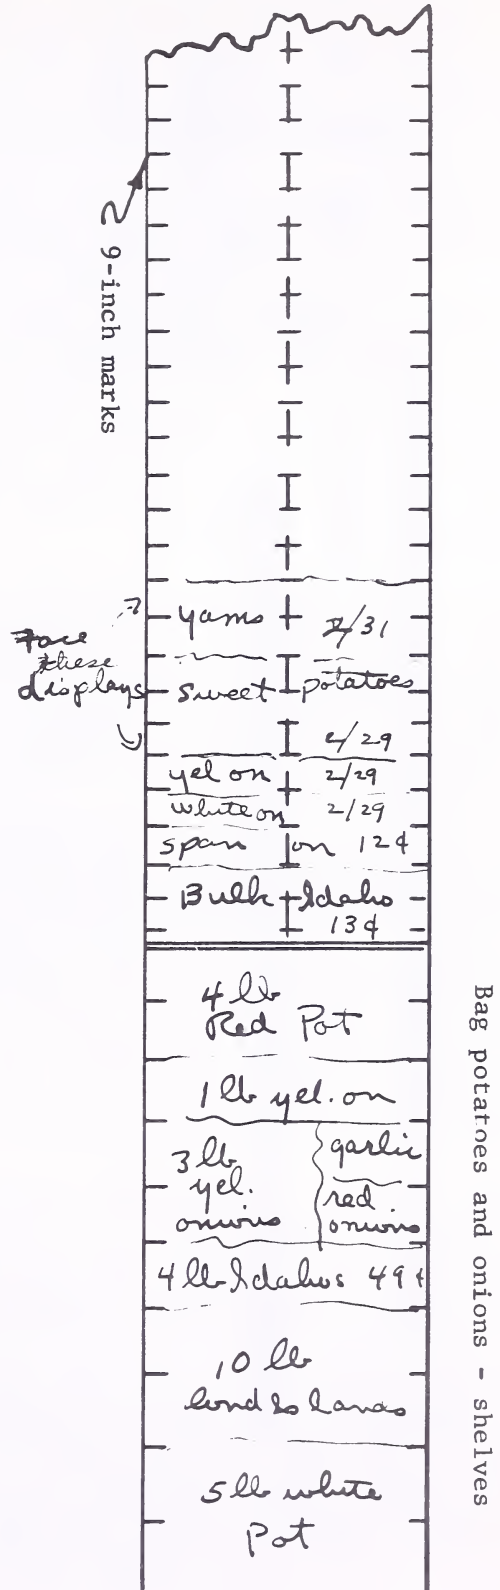 9-inch marks
Face
these
displays
yams 2/31
sweet potatoes
2/29
yel on 2/29
white on 2/29
span on 12¢
Bulk Idaho
13¢
4 lb
Red Pot
1 lb yel. on
3 lb
yel.
onions
garlic
red
onions
4 lb Idahos 49¢
10 lb
5 lb white
Pot
Bag potatoes and onions - shelves